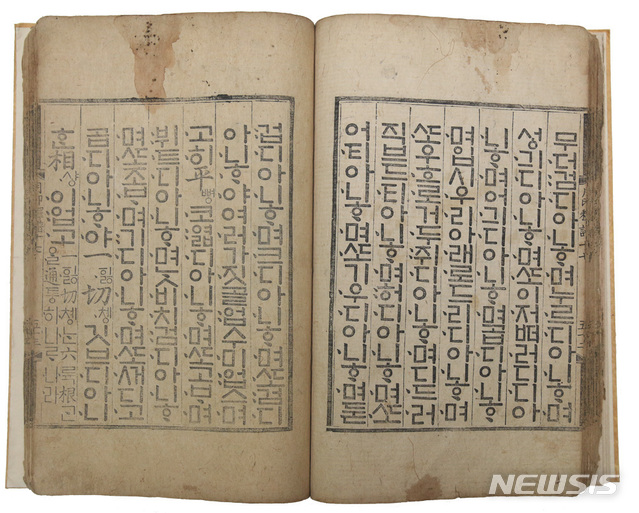 무더검디아니ᄒᆞ며누르디아니ᄒᆞ며
성긔디아니ᄒᆞ며ᄯᅩ이저ᄠᅥ러디디아
니ᄒᆞ며어긔디아니ᄒᆞ며곱디아니ᄒᆞ
며입시우리아래로드리디아니ᄒᆞ며
ᄯᅩ우흐로거두쥐디아니ᄒᆞ며디드러
디아니ᄒᆞ며헐디아니ᄒᆞ며ᄯᅩ
디아니ᄒᆞ며ᄯᅩ기우디아니ᄒᆞ며둗
겁디아니ᄒᆞ며크디아니ᄒᆞ며ᄯᅩ검디
아니ᄒᆞ야여러가짓 업스며
고히平뼝코엷디아니ᄒᆞ며ᄯᅩ고ᄇᆞ며
뷔트디아니ᄒᆞ며ᄂᆞᆺ비치검디아니ᄒᆞ
며ᄯᅩ조ᄇᆞ며기디아니ᄒᆞ며ᄯᅩ 디고
곱디아니ᄒᆞ야一ᅙᅵᇙ切촁깃브디아니
ᄒᆞᆫ相샹이업고 ᅙᅵᇙ切촁ᄂᆞᆫ六륙根ᄀᆞᆫ
을通통히니르니라
NEWSIS